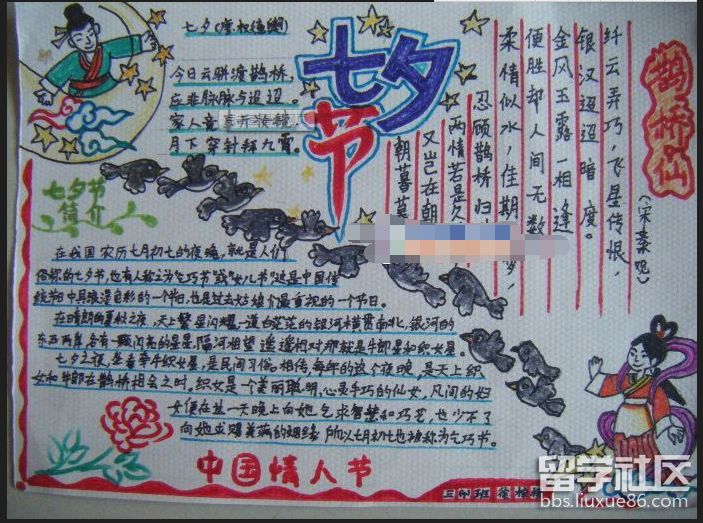 七夕(唐权德舆)
今日云骈渡鹊桥，
应非脉脉与迢迢。
家人竟
月下穿针拜九霄。
七夕节
鹊桥仙
(宋秦观)
纤云弄巧，飞星传恨，
银汉迢迢暗度。
金风玉露一相逢
便胜却人间无数
柔情似水，佳期
忍顾鹊桥归
两情若是久
又岂在朝
朝暮暮
七夕节
简介
在我国农历七月初七的夜晚，就是人们
俗称的七夕节，也有人称之为乞巧节或"女儿节"这是中国传
统节日中具浪漫色彩的一个节日，也是过去姑娘们最重视的一个节日。
在晴朗的夏秋之夜，天上繁星闪耀一道白茫茫的银河横贯南北，银河的
东西两岸，各有一颗闪亮的星星，隔河相望遥遥相对那就是牛郎星和织女星。
七夕之夜，坐看牵牛织女星，是民间习俗。相传，每年的这个夜晚，是天上织
女和牛郎在鹊桥相会之时。织女是一个美丽聪明，心灵手巧的仙女，凡间的妇
女便在这一天晚上向她乞求智慧和巧艺，也少不了
向她求赐美满的姻缘所以七月初七也被称为乞巧节。
中国情人节
留学社区
bbs.liuxue86.com